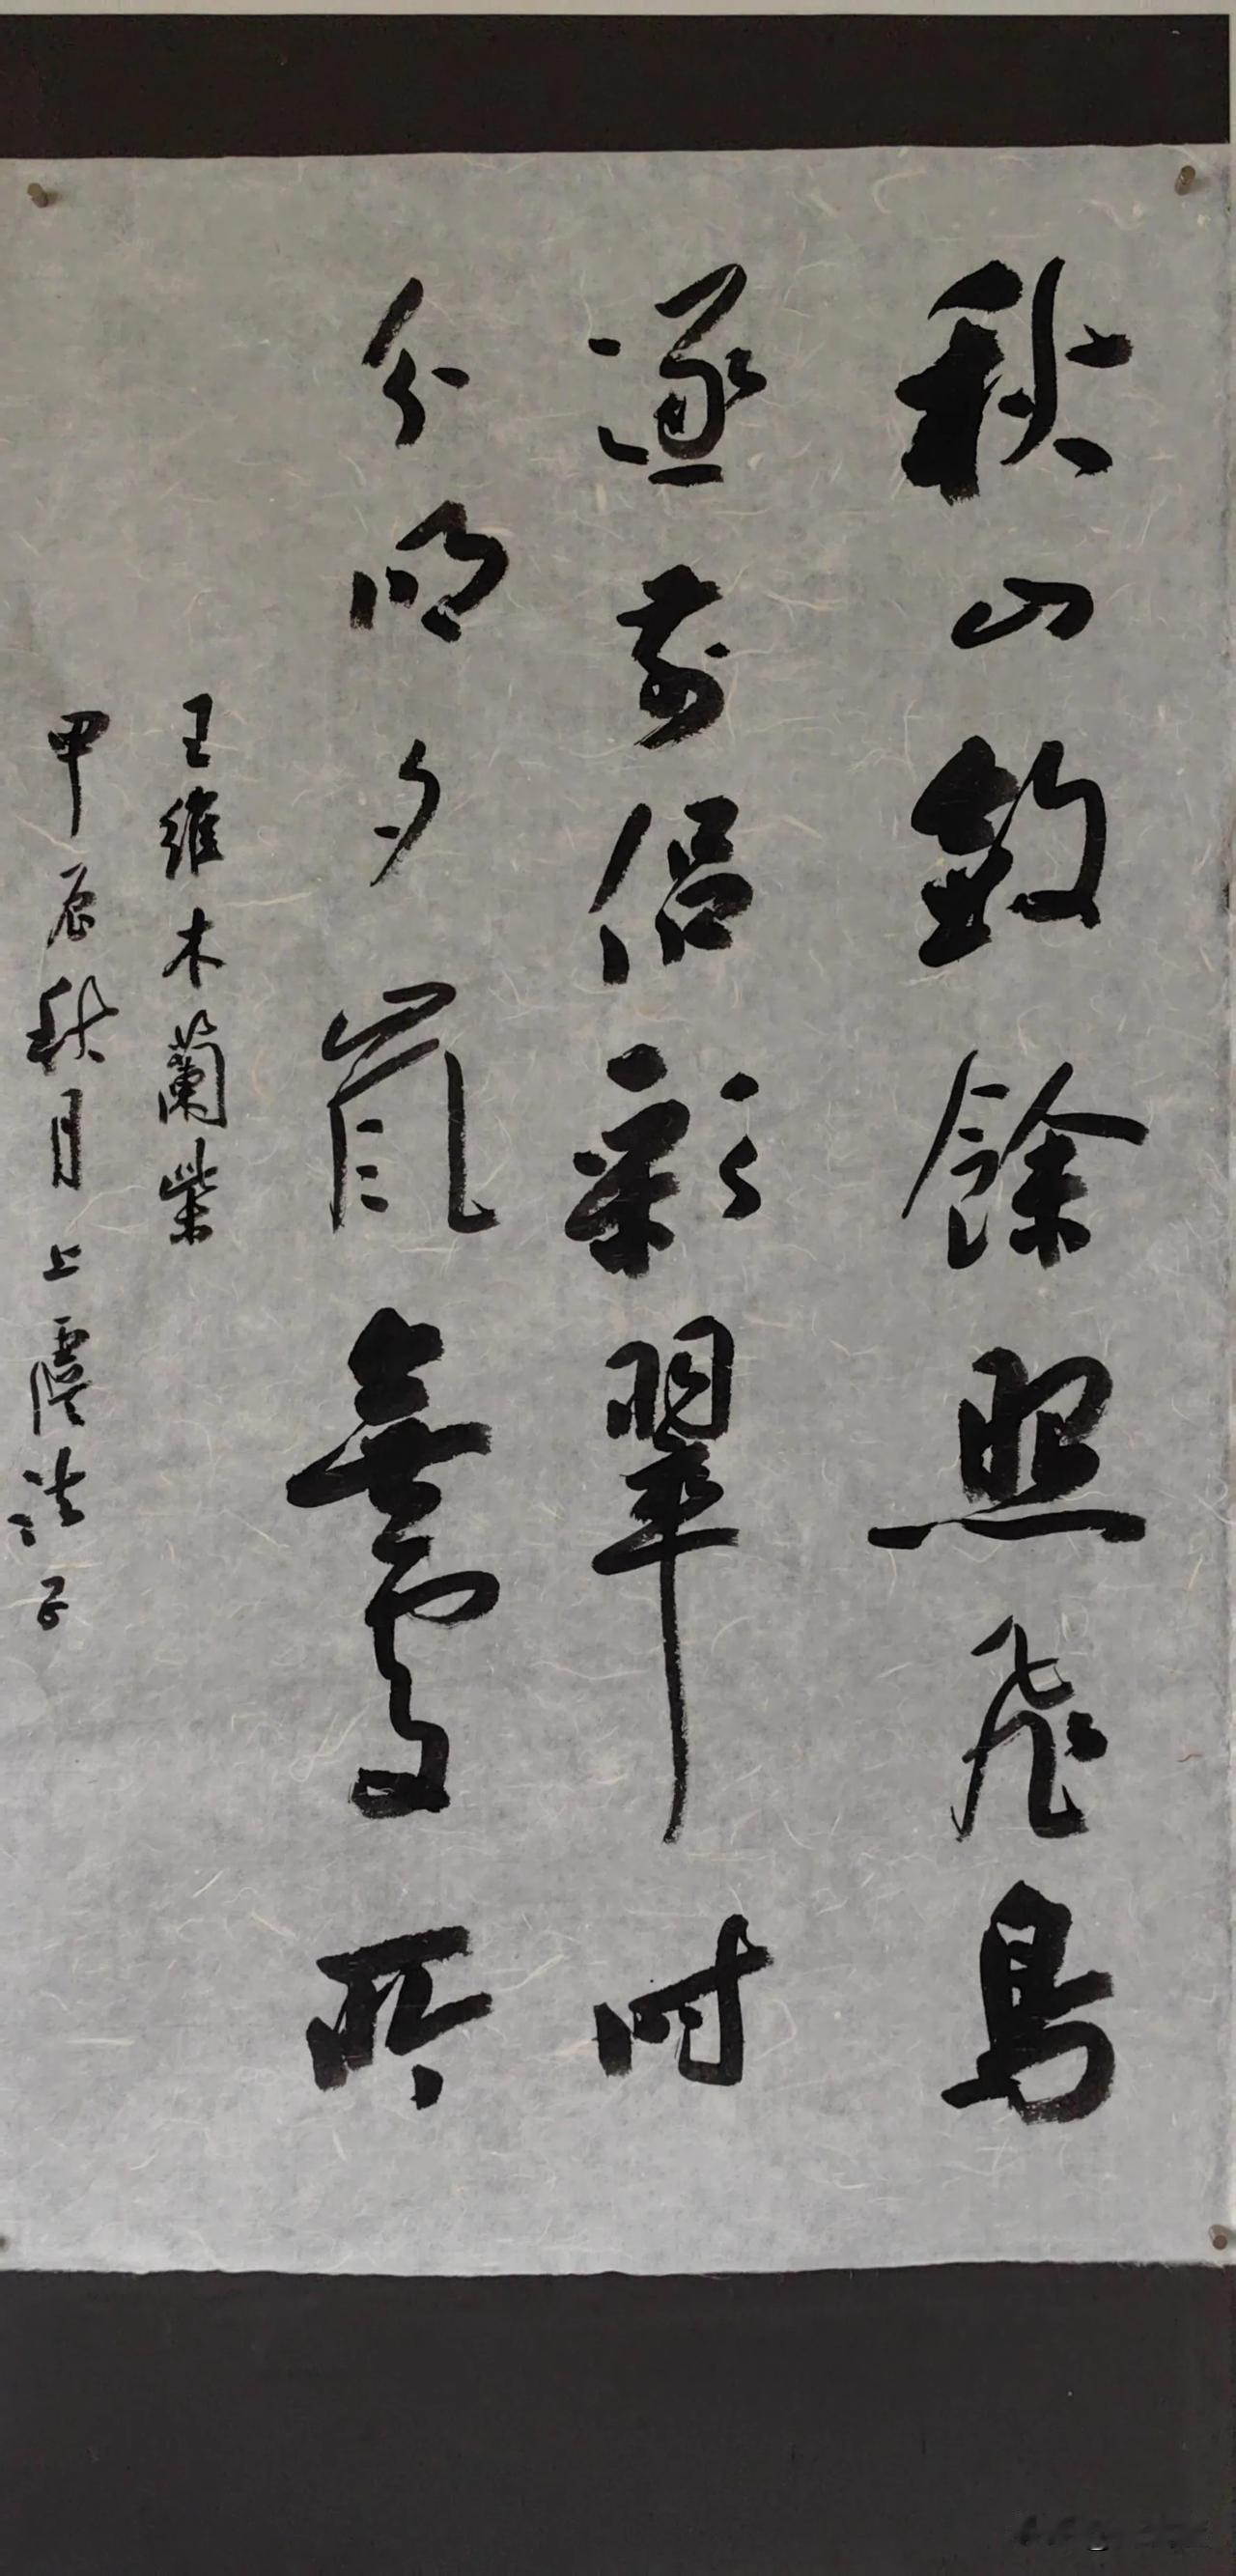 秋山斂餘照飛鳥
逐前侶彩翠時
分明夕嵐無處所
王維木蘭柴
甲辰秋月上虞浩子